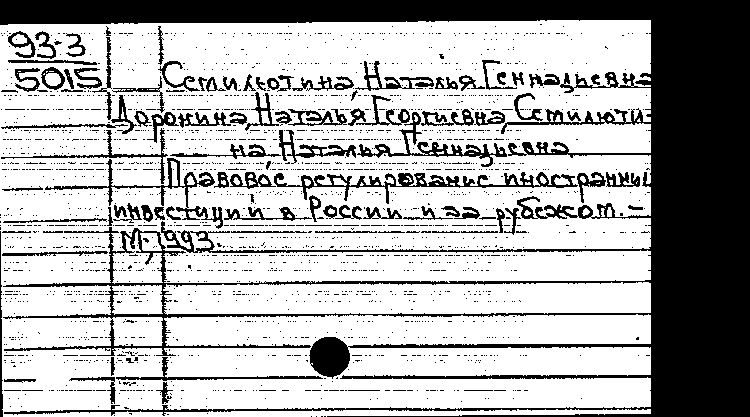 93-3
5015
Семилютина, Наталья Геннадьевна
Доронина, Наталья Георгиевна, Семилюти-
на Наталья Геннадьевна.
Правовое регулирование иностранны
инвестиций в России и за рубежом. -
М., 1993.